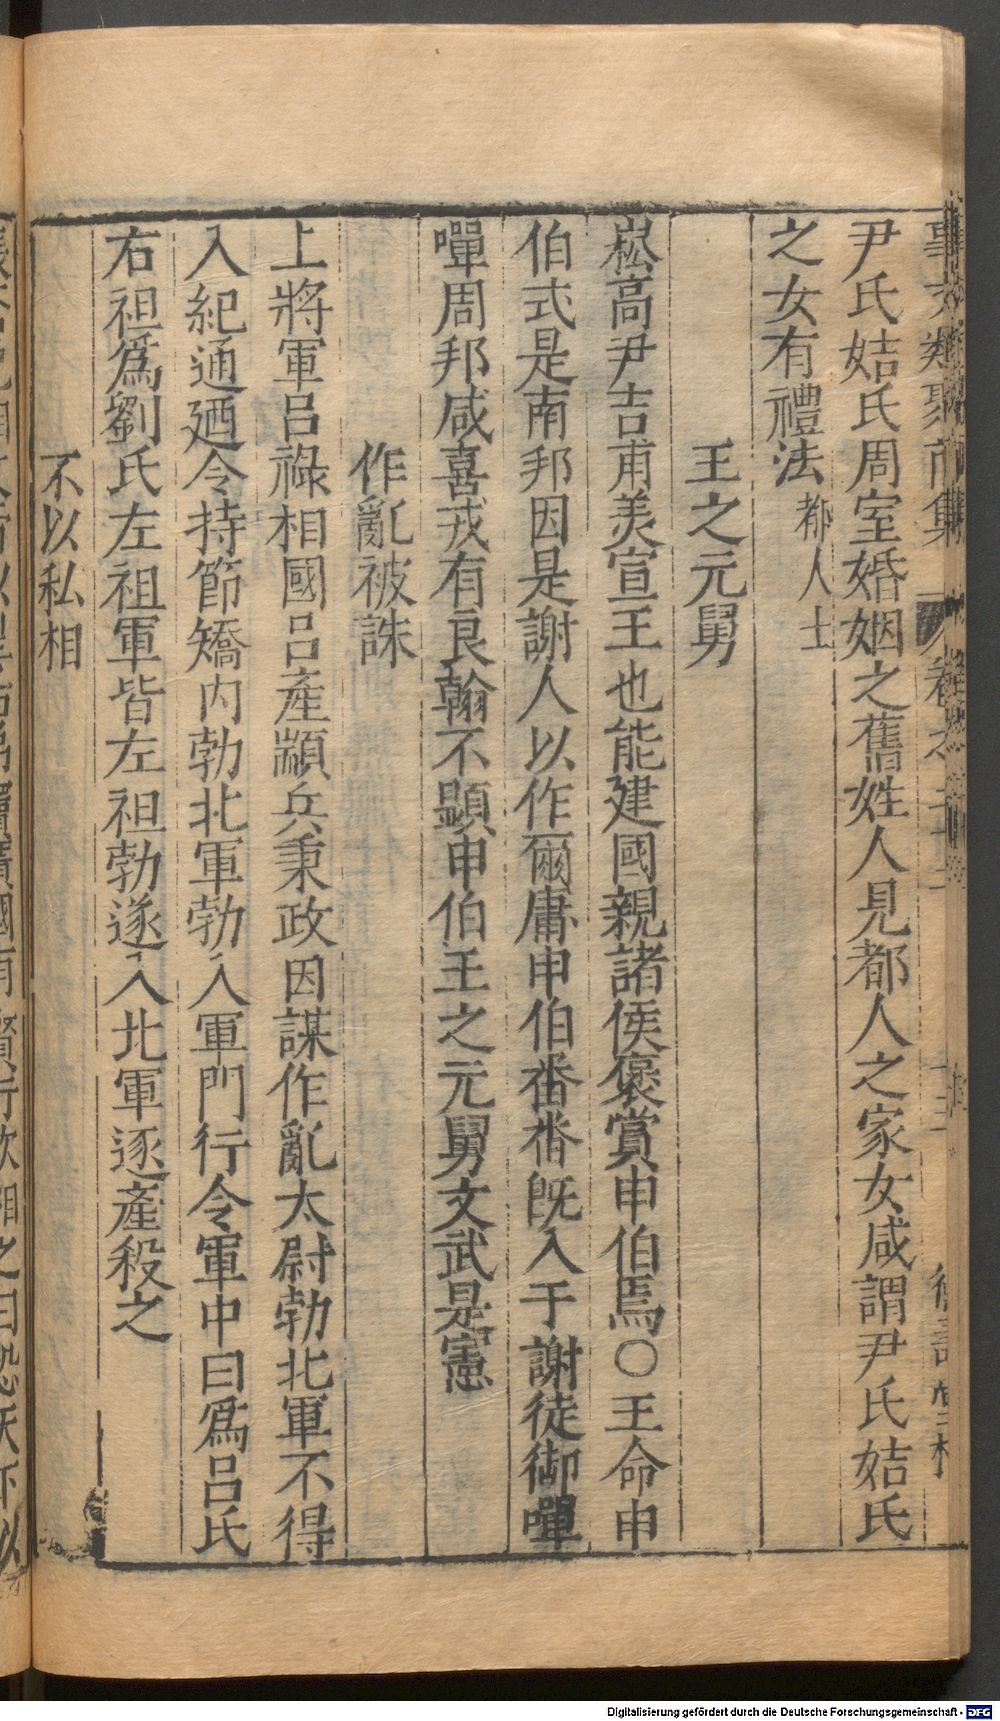 事文類聚前集 卷之二十三 十三 德壽堂梓
尹氏姞氏周室婚姻之舊姓人見都人之家女咸謂尹氏姞氏
之女有禮法都人士
王之元舅
崧高尹吉甫美宣王也能建國親諸侯褒賞申伯焉〇王命申
伯式是南邦因是謝人以作爾庸申伯番番旣入于謝徒御嘽
嘽周邦咸喜戎有良翰不顯申伯王之元舅文武是憲
作亂被誅
上將軍呂祿相國呂產顓兵秉政因謀作亂太尉勃北軍不得
入紀通廼令持節矯內勃北軍勃入軍門行令軍中曰爲呂氏
右袒爲劉氏左袒軍皆左袒勃遂入北軍逐產殺之
不以私相
Digitalisierung gefördert durch die Deutsche Forschungsgemeinschaft - DFG